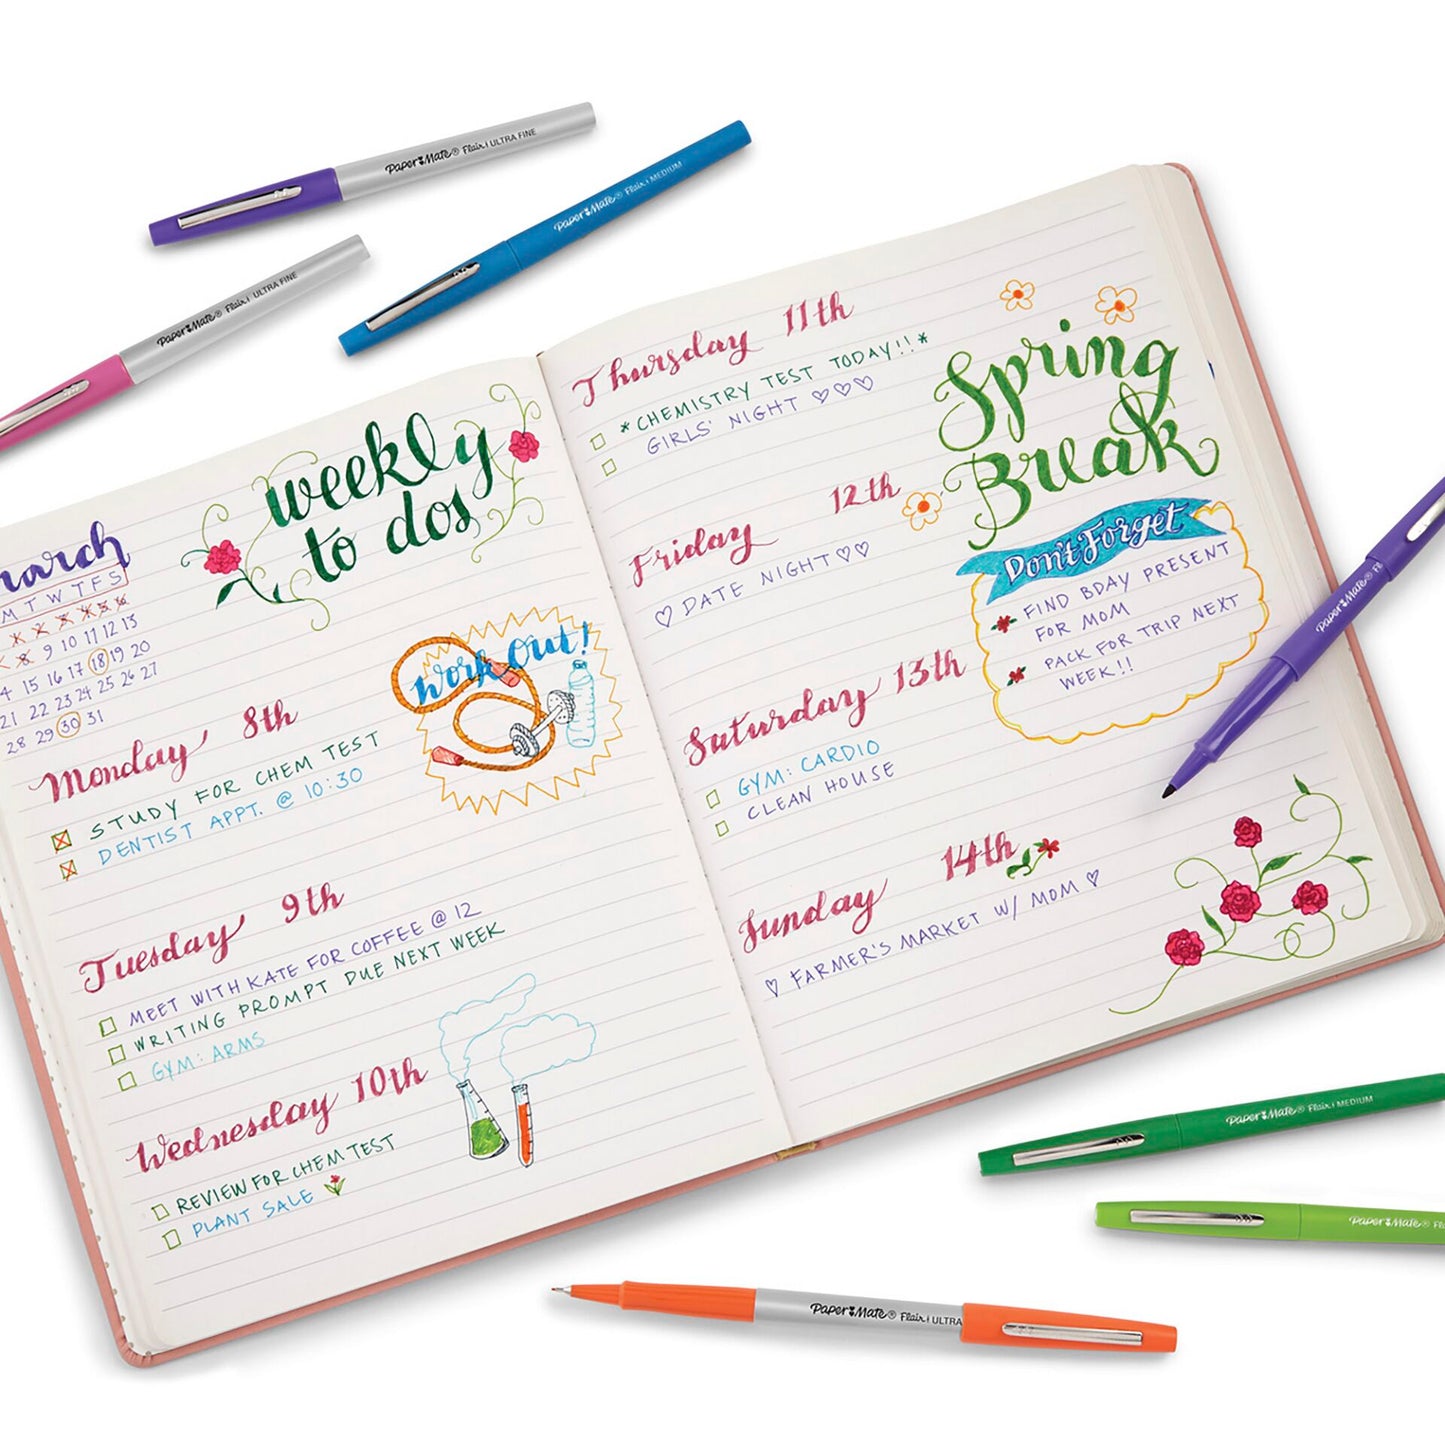 Paper Mate® Flair | ULTRA FINE
Paper Mate® Flair | MEDIUM
Paper Mate® Flair | ULTRA FINE
weekly
to dos
march
M T W T F S
9 10 11 12 13
15 16 17 18 19 20
21 22 23 24 25 26 27
28 29 30 31
Work Out!
Monday 8th
STUDY FOR CHEM TEST
DENTIST APPT. @ 10:30
Tuesday 9th
MEET WITH KATE FOR COFFEE @ 12
WRITING PROMPT DUE NEXT WEEK
GYM: ARMS
Wednesday 10th
REVIEW FOR CHEM TEST
PLANT SALE
Thursday 11th
*CHEMISTRY TEST TODAY!!*
GIRLS' NIGHT ♡♡♡
Friday 12th
♡ DATE NIGHT ♡♡
Saturday 13th
GYM: CARDIO
CLEAN HOUSE
Sunday 14th
♡ FARMER'S MARKET W/ MOM ♡
Spring
Break
Don't Forget
FIND BDAY PRESENT
FOR MOM
PACK FOR TRIP NEXT
WEEK!!
Paper Mate®
Paper Mate® Flair | MEDIUM
Paper Mate®
Paper Mate® Flair | ULTRA